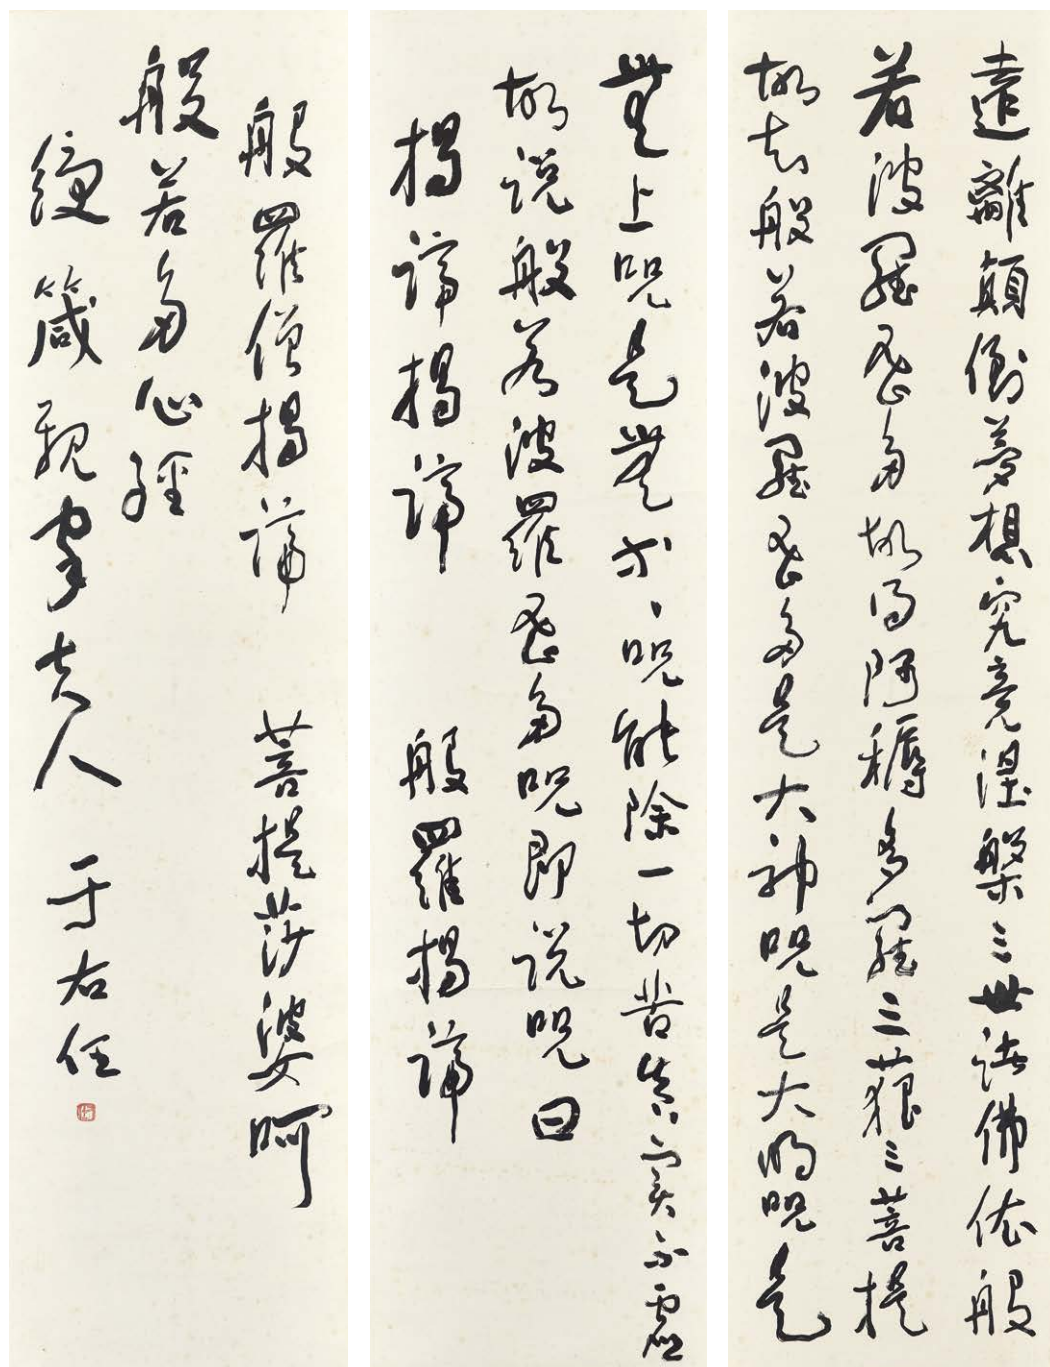 遠離顛倒夢想究竟涅槃三世諸佛依般
若波羅蜜多故得阿耨多羅三藐三菩提
故知般若波羅蜜多是大神呪是大明呪是
無上呪是無等等呪能除一切苦真實不虛
故說般若波羅蜜多呪即說呪曰
揭諦揭諦 般羅揭諦
般羅僧揭諦 菩提莎婆呵
般若多心經
箴親家夫人 于右任